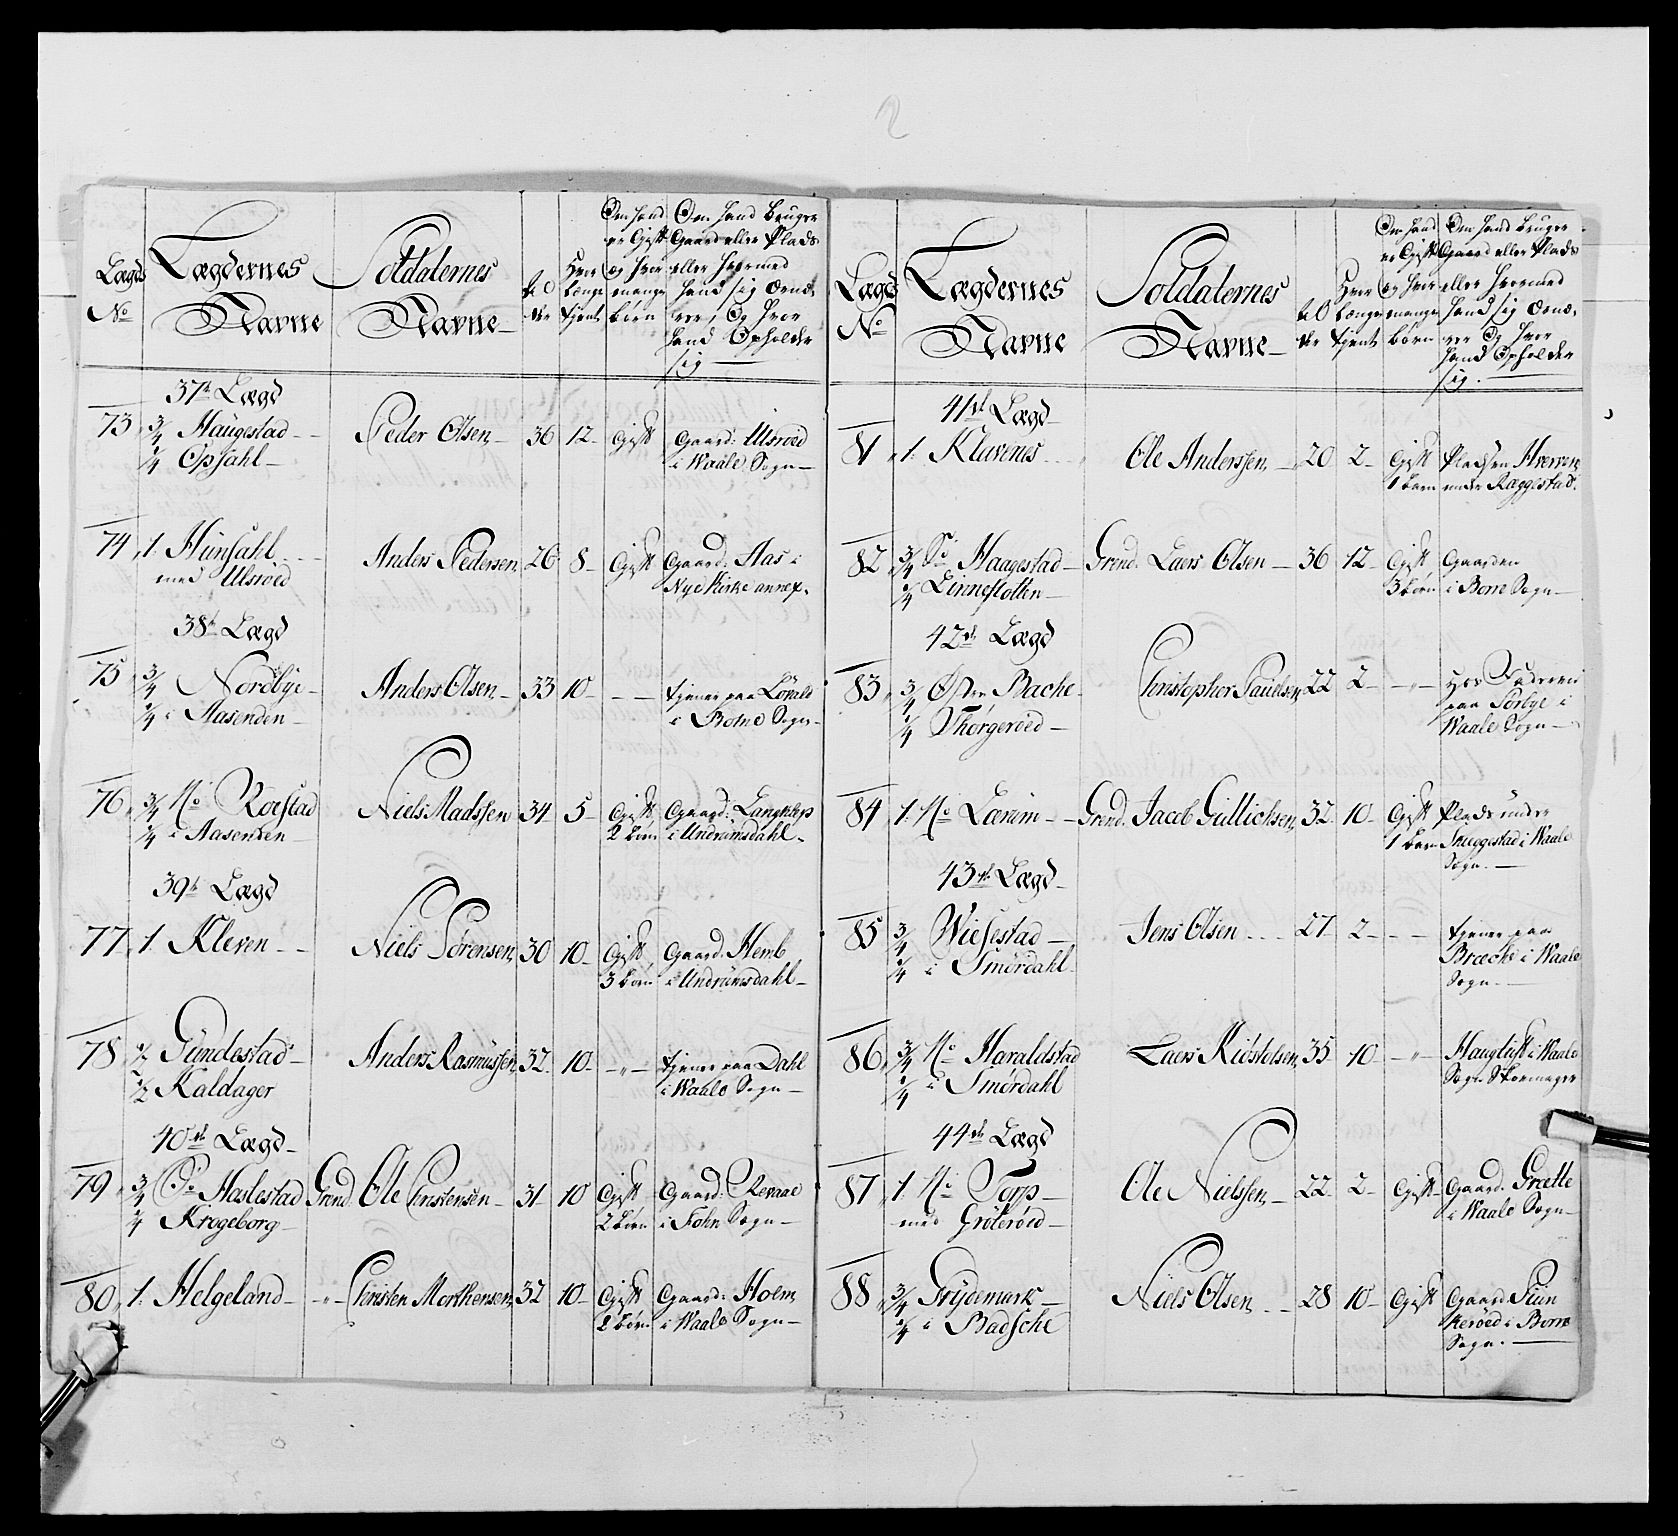 2
Lægds No
Lægdernes Navne
Soldaternes Navne
Al der
Hvor længe tjent
Om hand er Gift og hvor mange børn
Om hand bruger Gaard eller Plads eller hvormed hand sig ernærer, Og hvor hand Opholder sig
37te Lægd
73 3/4 Haugestad Peder Olsen 36 12 Gift Gaard: Ulsroed
1/4 Opsahl i Waale Sogn
74 1. Hunsahl Anders Pedersen 26 8 Gift Gaard: Aas i
med Ulsroed Nye Kirke annex
38te Lægd
75 3/4 Nordbye Anders Olsen 33 10 tjener paa
1/4 i Aasenden i Botne Sogn
76 3/4 No Roestad Niels Madssen 34 5 Gift Gaard:
1/4 i Aasenden 2 børn i Undrumsdahl
39te Lægd
77 1. Kleven Niels Sørensen 30 10 Gift Gaard: Hemb
3 børn i Undrumsdahl
78 1/2 Gundestad Anders Rasmussen 32 10 tjener paa Dahl
1/2 Kaldager i Waale Sogn
40de Lægd
79 3/4 So Haslestad Grend. Ole Christensen 31 10 Gift Gaard: Revaae
1/4 Krogeborg 2 børn i Fohn Sogn
80 1. Helgeland Christen Morthensen 32 10 Gift Gaard: Holm
2 børn i Waale Sogn
Lægds No
Lægdernes Navne
Soldaternes Navne
Al der
Hvor længe tjent
Om hand er Gift og hvor mange børn
Om hand bruger Gaard eller Plads eller hvormed hand sig ernærer Og hvor hand Opholder sig.
41de Lægd
81 1. Klavenes Ole Anderssen 20 2 Gift Pladsen
1 barn under Raggestad
82 3/4 So Haagestad Grend. Laers Olsen 36 12 Gift Gaarden
1/4 Linneslotten 3 børn i Borre Sogn
42de Lægd
83 3/4 Østre Bache Christopher Paulsen 22 2 Hos Faderen
1/4 Thorgeroed paa Sørbye i
Waale Sogn
84 1. No Lærum Grend. Jacob Gullichsen 32 10 Gift Plads under
1 barn Snuggestad i Waale
Sogn
43de Lægd
85 3/4 Wiesestad Jens Olsen 27 2 tjener paa
1/4 i Smørdahl Bræche i Waale
Sogn
86 3/4 No Haraldstad Laers 35 10 i Waale
1/4 i Smørdahl Sogn Skoemager
44de Lægd
87 1. No Torp Ole Nielssen 22 2 Gift Gaard: Grette
med Grøteroed i Waale Sogn
88 3/4 Frydemark Niels Olsen 28 10 Gift Gaard:
1/4 i Badsche i Borre
Sogn.